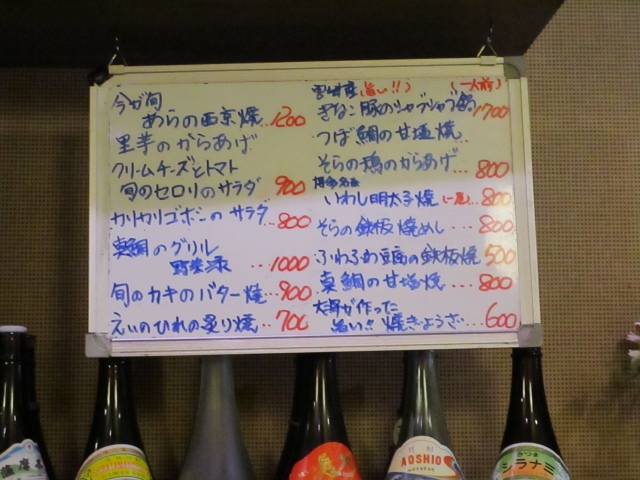 今が旬
あらの西京焼…1200
里芋のからあげ
クリームチーズとトマト
旬のセロリのサラダ 900
カリカリゴボーのサラダ …800
真鯛のグリル
野菜添 …1000
旬のカキのバター焼…900
えいのひれの炙り焼…700
宮崎産(旨い!!) (一人前)
きなこ豚のシャブシャブ鍋 1700
つぼ鯛の甘塩焼…
そらの鶏のからあげ …800
博多名産
いわし明太子焼(一尾)…800
そらの鉄板焼めし …800
ふわふわ豆腐の鉄板焼 500
真鯛の甘塩焼 …800
大将が作った
旨い!! 焼きぎょうざ…600
AOSHIO
さつま
シラナミ